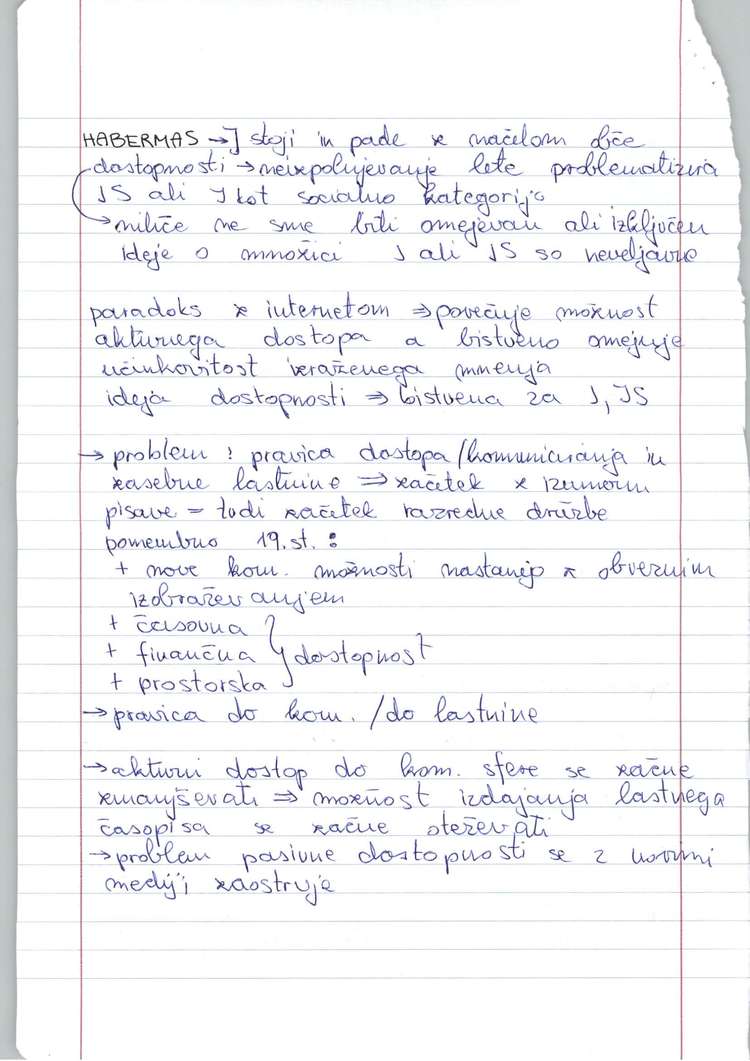 HABERMAS → J stoji in pade z načelom obče
dostopnosti → neizpolnjevanje lete problematizira
JS ali J kot socialno kategorijo
→ nihče ne sme biti omejevan ali izključen
ideje o množici J ali JS so neveljavne
paradoks z internetom ⇒ povečuje možnost
aktivnega dostopa a bistveno omejuje
učinkovitost izraženega mnenja
ideja dostopnosti ⇒ bistvena za J, JS
→ problem: pravica dostopa/komuniciranja in
zasebne lastnine ⇒ začetek z izumom
pisave = tudi začetek razredne družbe
pomembno 19. st. :
+ nove kom. možnosti nastanejo z obveznim
izobraževanjem
+ časovna
+ finančna } dostopnost
+ prostorska
→ pravica do kom. /do lastnine
→ aktivni dostop do kom. sfere se začne
zmanjševati ⇒ možnost izdajanja lastnega
časopisa se začne oteževati
→ problem pasivne dostopnosti se z novimi
mediji zaostruje